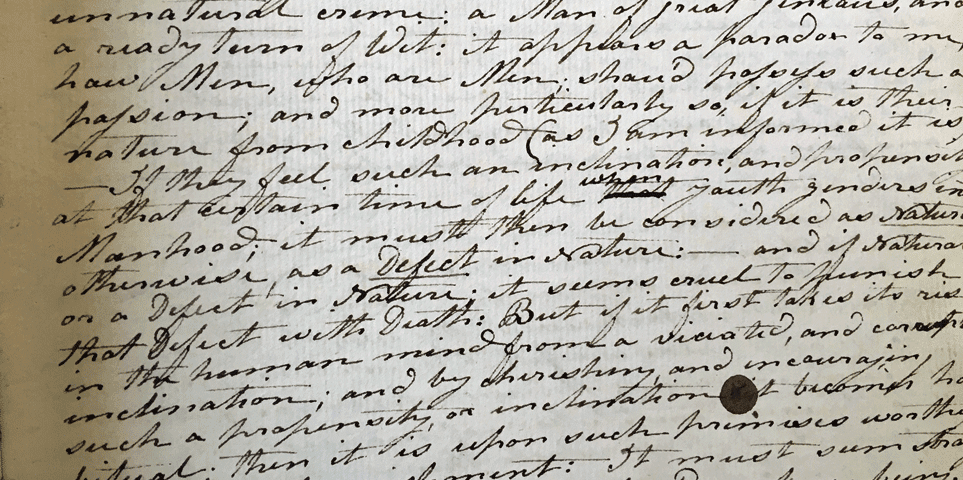 unnatural crime: a Man of great Genious, and
a ready turn of Wit: it appears a paradox to me,
how Men, who are Men, shou'd possess such a
passion; and more perticularly so, if it is their
nature from childhood (as I am informed it is
— If they feel such an inclination, and propensit
at that certain time of life when that youth genders in
Manhood; it must then be considered as Natur
otherwise, as a Defect in Nature: — and if Natura
or a Defect in Nature; it seems cruel to punish
that Defect with Death: But if it first takes its ris
in the human mind from a viciated, and corrup
inclination; and by cherishing and incouragin
such a propensity, or inclination it becomes ha
bitual: then it is upon such primises worth
It must sum stra
being